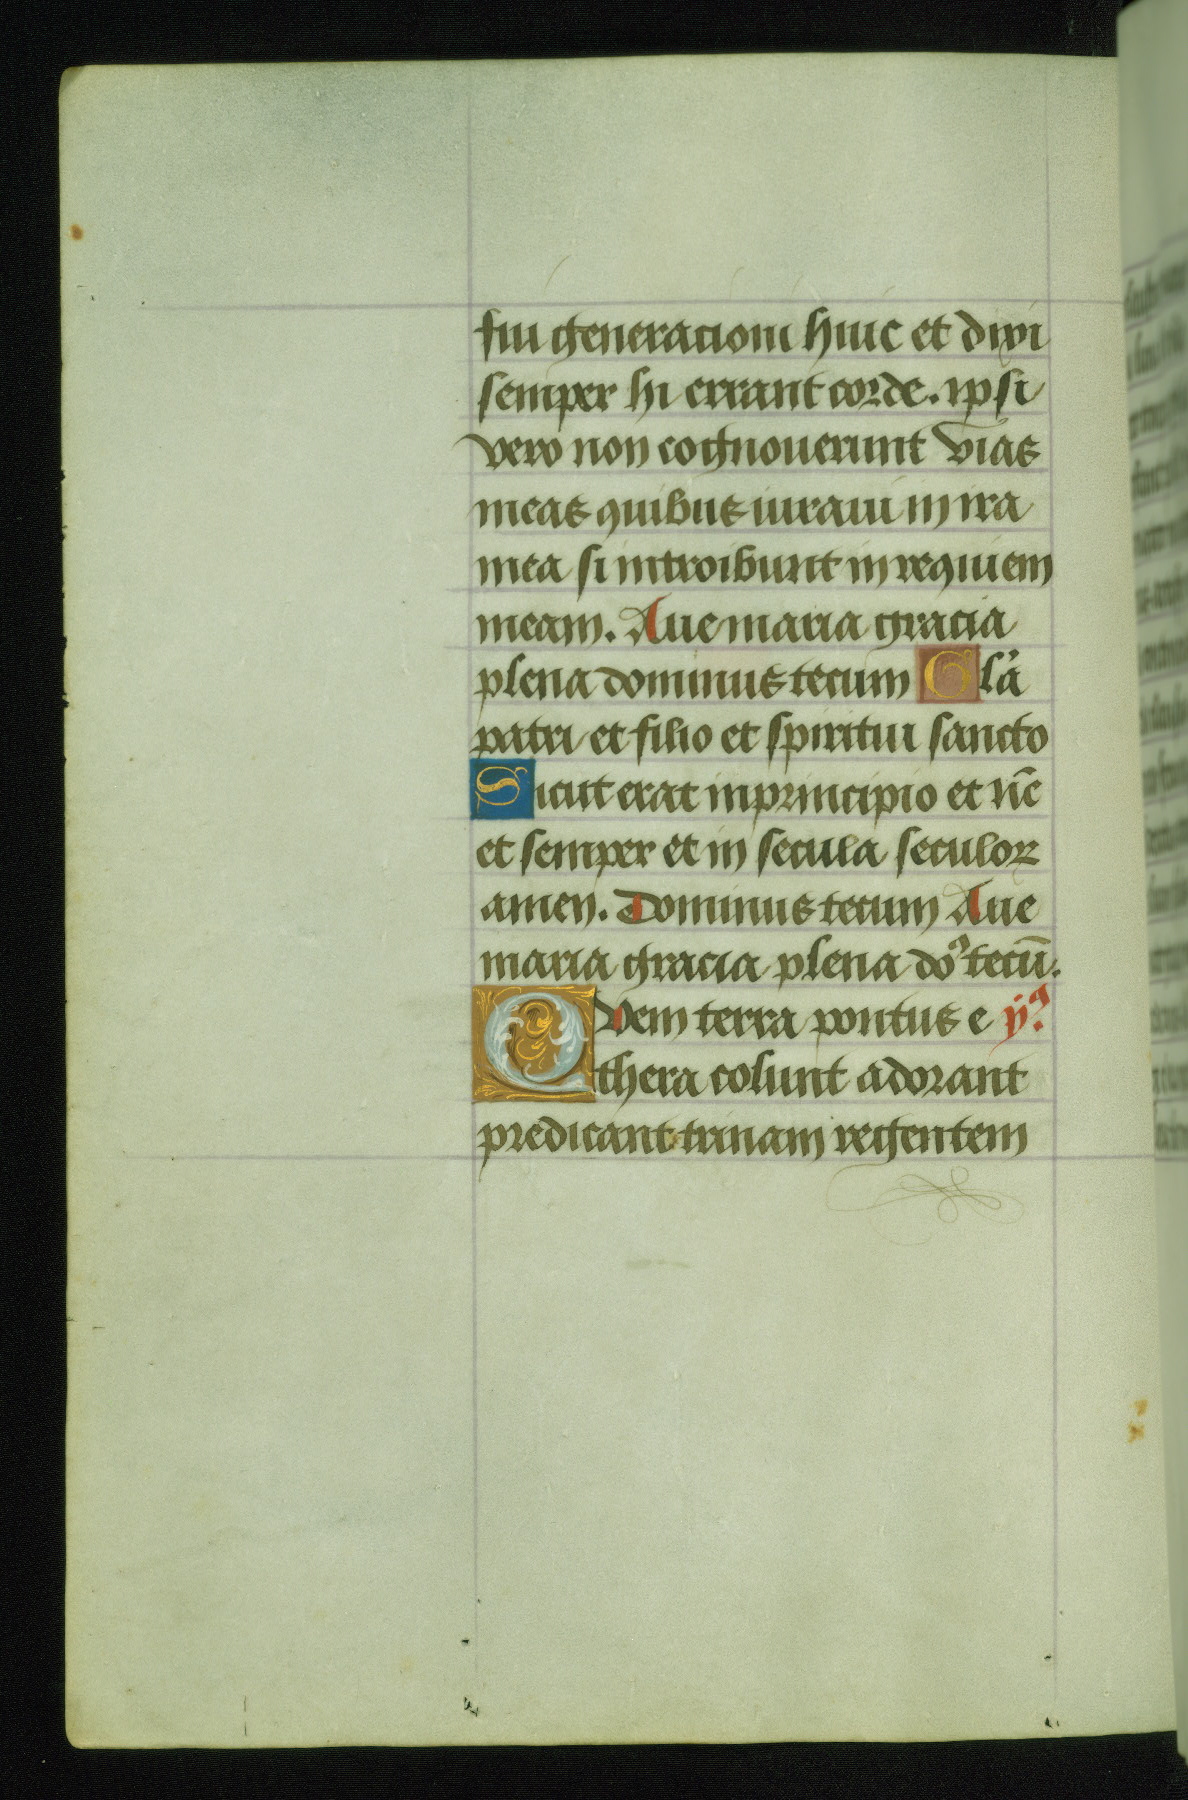 fui generacioni huic et dixi
semper hi errant corde. ipsi
vero non cognouerunt vias
meas quibus iuraui in ira
mea si introibunt in requiem
meam. Aue maria gracia
plena dominus tecum Glã
patri et filio et spiritui sancto
Sicut erat in principio et nc̃
et semper et in secula seculoꝝ
amen. Dominus tecum Aue
maria gracia plena doꝰ tecũ.
Quem terra pontus e ẏꝰ.
thera colunt adorant
predicant trinam regentem